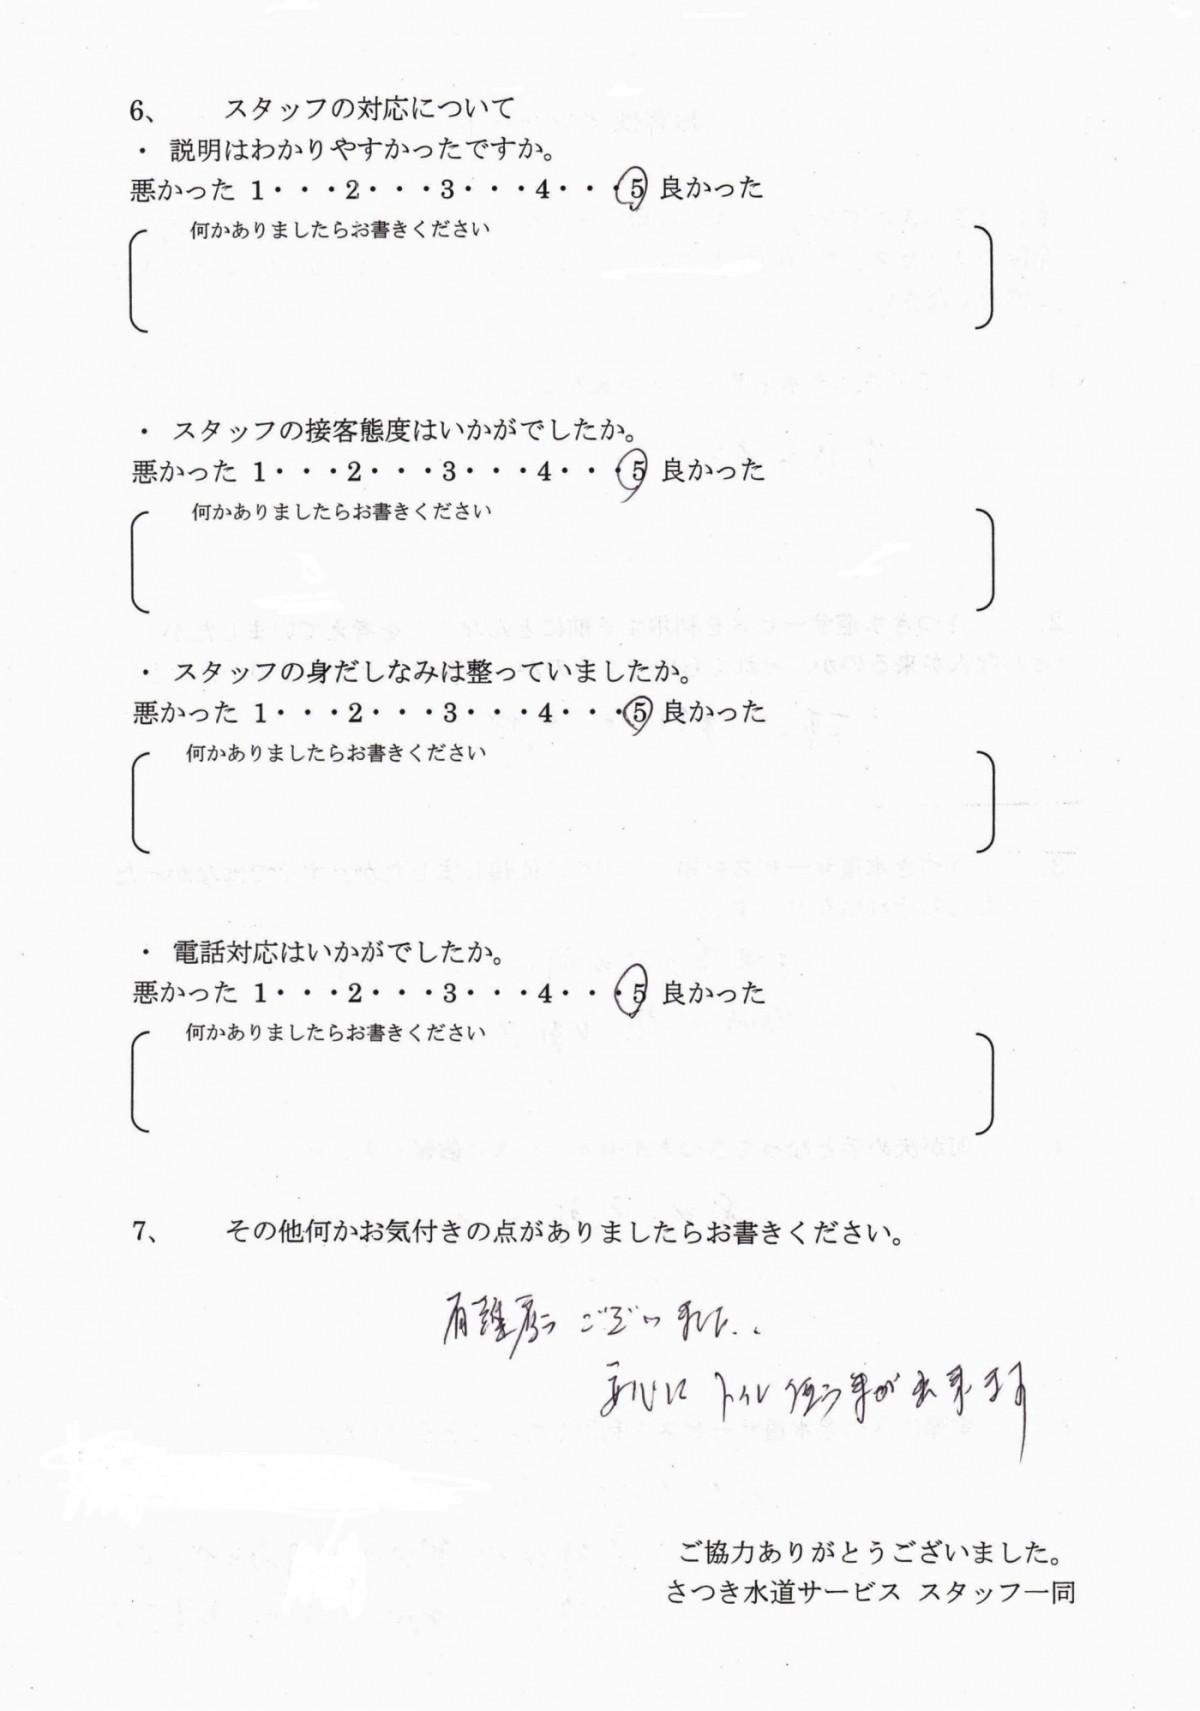 6、 スタッフの対応について
・ 説明はわかりやすかったですか。
悪かった 1・・・2・・・3・・・4・・・5 良かった
何かありましたらお書きください
・ スタッフの接客態度はいかがでしたか。
悪かった 1・・・2・・・3・・・4・・・5 良かった
何かありましたらお書きください
・ スタッフの身だしなみは整っていましたか。
悪かった 1・・・2・・・3・・・4・・・5 良かった
何かありましたらお書きください
・ 電話対応はいかがでしたか。
悪かった 1・・・2・・・3・・・4・・・5 良かった
何かありましたらお書きください
7、 その他何かお気付きの点がありましたらお書きください。
有難うございました..
安心にトイレ使う事が出来ます
ご協力ありがとうございました。
さつき水道サービス スタッフ一同